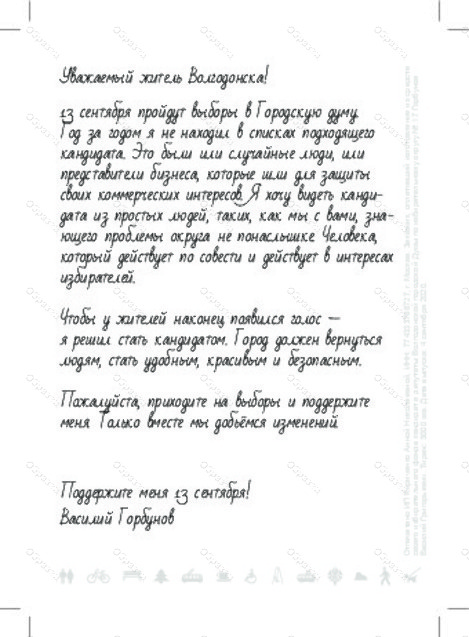 Уважаемый житель Волгодонска!
13 сентября пройдут выборы в Городскую думу.
Год за годом я не находил в списках подходящего
кандидата. Это были или случайные люди, или
представители бизнеса, которые шли для защиты
своих коммерческих интересов. Я хочу видеть канди-
дата из простых людей, таких, как мы с вами, зна-
ющего проблемы округа не понаслышке. Человека,
который действует по совести и действует в интересах
избирателей.
Чтобы у жителей наконец появился голос —
я решил стать кандидатом. Город должен вернуться
людям, стать удобным, красивым и безопасным.
Пожалуйста, приходите на выборы и поддержите
меня. Только вместе мы добьёмся изменений.
Поддержите меня 13 сентября!
Василий Горбунов